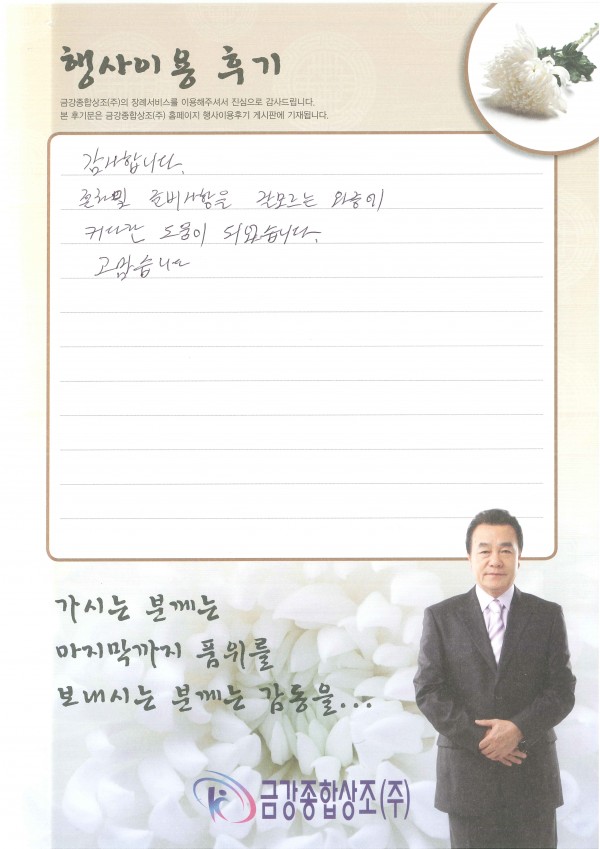 행사이용 후기
금강종합상조(주)의 장례서비스를 이용해주셔서 진심으로 감사드립니다.
본 후기문은 금강종합상조(주) 홈페이지 행사이용후기 게시판에 기재됩니다.
감사합니다.
절차및 준비사항을 잘모르는 와중에
커다란 도움이 되었습니다.
고맙습니다
가시는 분께는
마지막까지 품위를
보내시는 분께는 감동을...
금강종합상조(주)